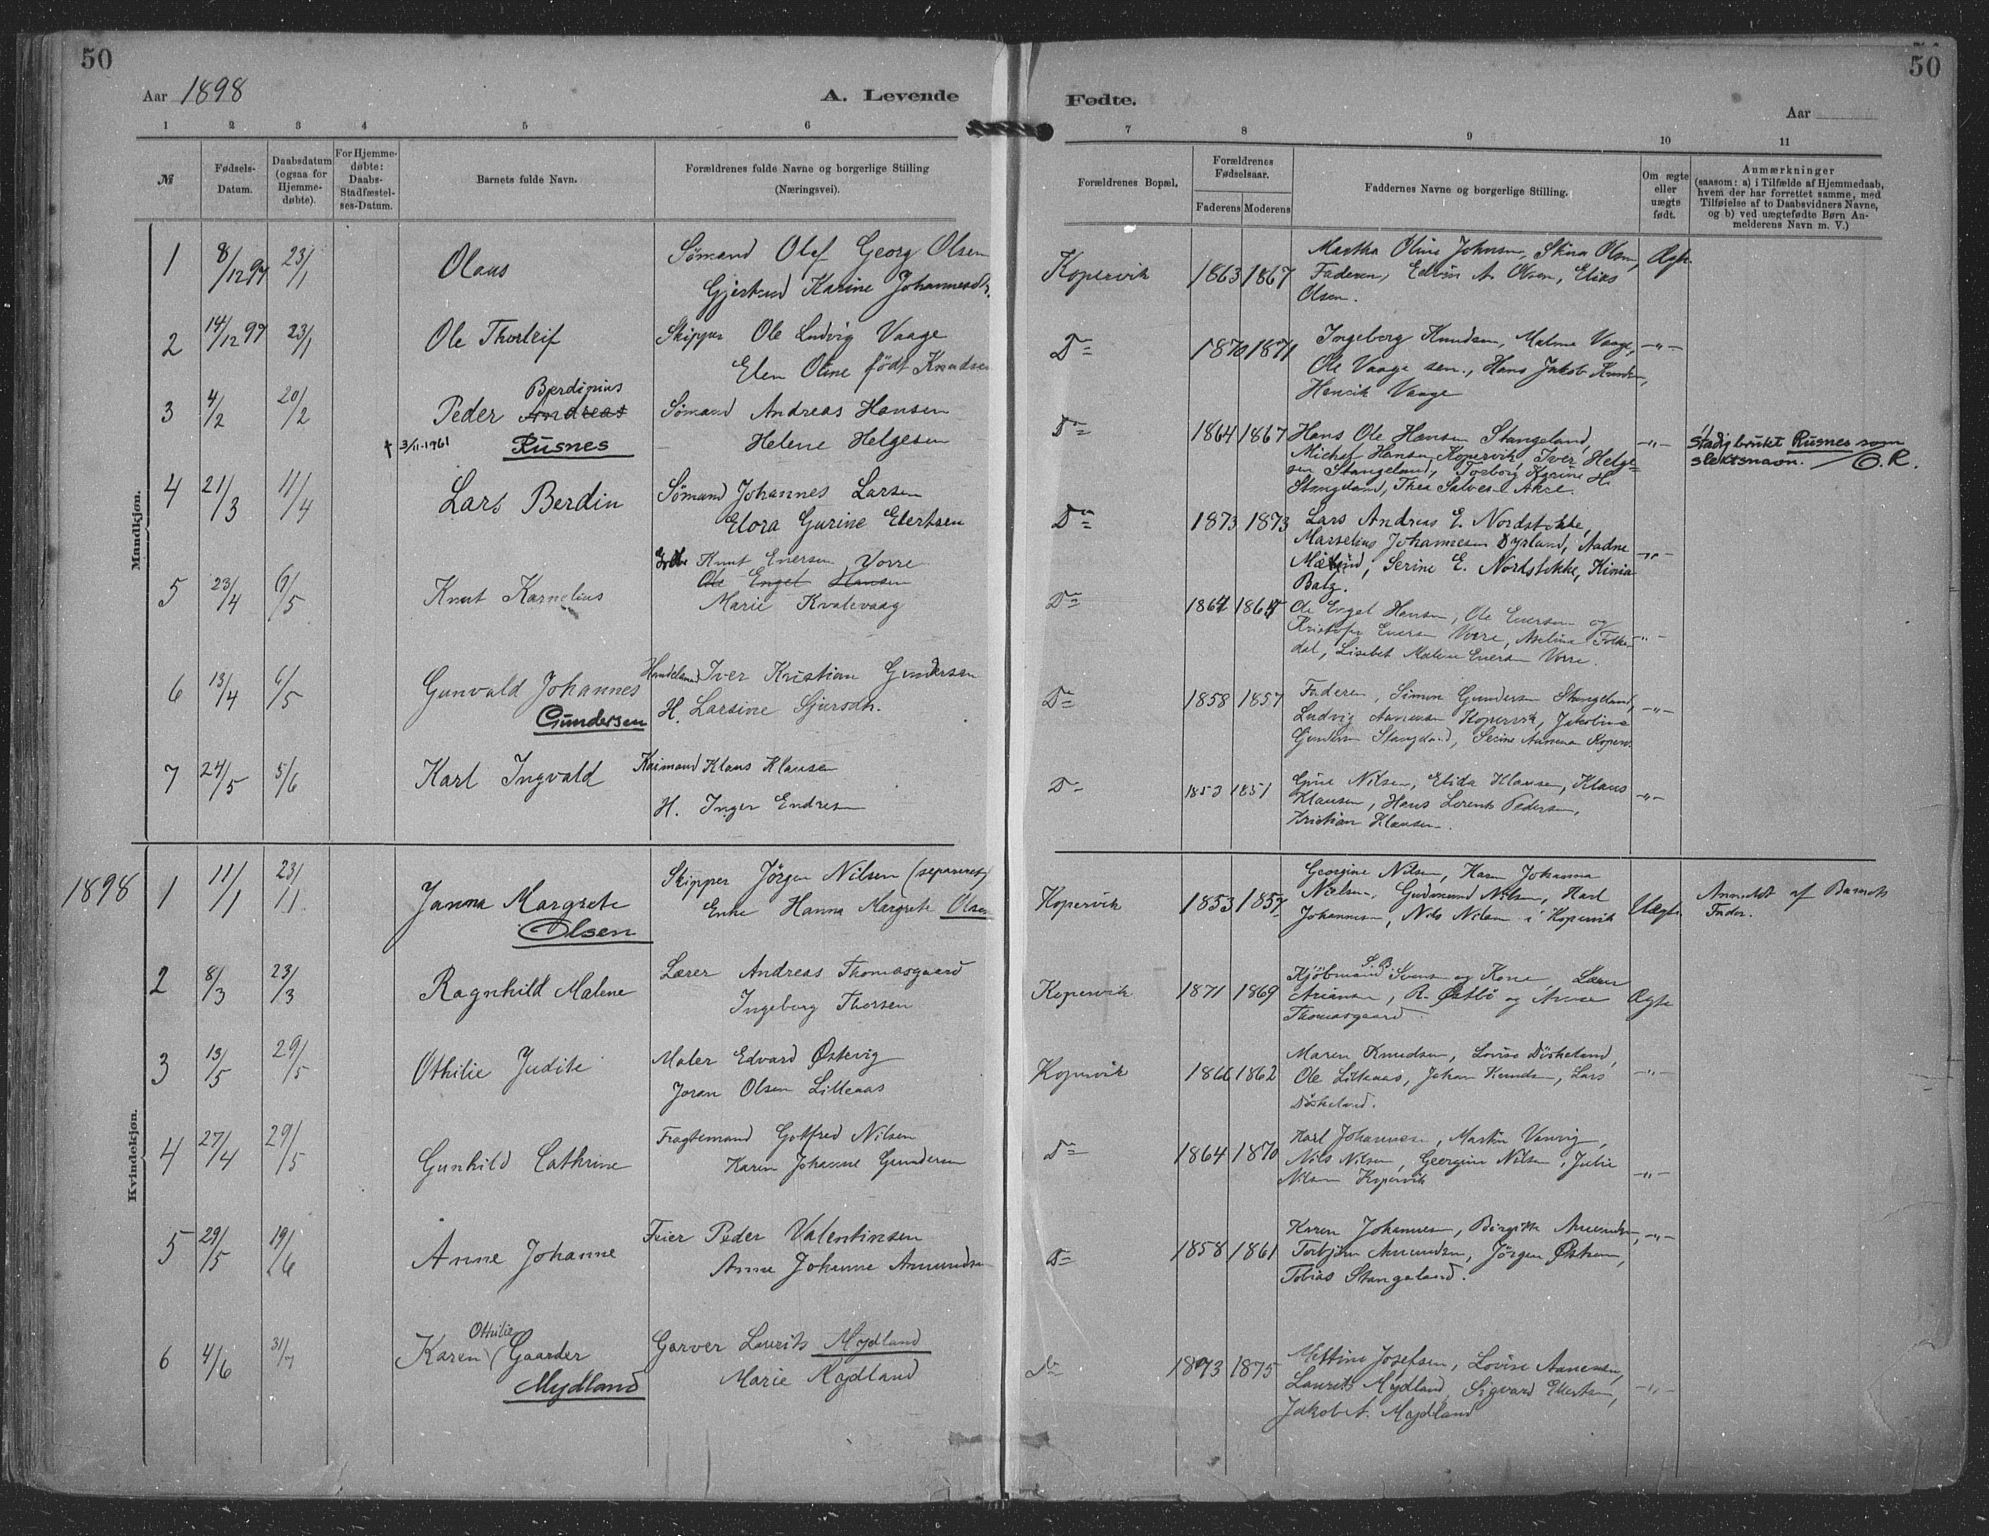 50
50
Aar 1898
A. Levende
Fødte.
Aar
1 2 3 4 5 6 7 8 9 10 11
№
Fødsels-Datum.
Daabsdatum (ogsaa for Hjemme-døbte).
For Hjemme-døbte: Daabs-Stadfæstel-ses-Datum.
Barnets fulde Navn.
Forældrenes fulde Navne og borgerlige Stilling (Næringsvei).
Forældrenes Bopæl.
Forældrenes Fødselsaar.
Faderens Moderens
Faddernes Navne og borgerlige Stilling.
Om ægte eller uægte født.
Anmærkninger
(saasom: a) i Tilfælde af Hjemmedaab, hvem der har forrettet samme, med Tilføielse af to Daabsvidners Navne, og b) ved uægtefødte Børn An-melderens Navn m. V.)
Mandkjøn.
1 8/12 97 23/1 Olaus
Sømand Olaf Georg Olsen
Gjertrud Karine Johannesdt.
Kopervik 1863 1867
Martha Oline Johnsen, Stina Olsen,
Faderen, Edvin A. Olsen, Elias
Olsen.
Ægte
2 14/12 97 23/1 Ole Thorleif
Skipper Ole Ludvig Vaage
Elen Oline født Knudsen
Do 1870 1871
Ingeborg Knudsen, Malene Vaage,
Ole Vaage sen., Hans Jakob Knudsen,
Henrik Vaage
-"-
3 4/2 20/2 Peder Andreas
Berdinius
Rusnes
† 3/11-1961
Sømand Andreas Hansen
Helene Helgesen
Do 1864 1867
Hans Ole Hansen Stangeland,
Michel Hansen Kopervik, Iver Helge-
sen Stangeland, Torborg Karine H.
Stangeland, Thea Salvesen Akre.
-"-
Stadig brukt Rusnes som
slektsnavn. O. R.
4 21/3 11/4 Lars Berdin
Sømand Johannes Larsen
Elora Gurine Elertsen
Do 1873 1873
Lars Andreas E. Nordstokke,
Marselius Johannesen Dyrland, Aadne
Mæland, Serine E. Nordstokke, Kinia
Batz.
-"-
5 23/4 6/5 Knut Kornelius
Knut Enersen Vorre
Ole Engel Hansen
Marie Kvalevaag
Do
Ole Engel Hansen, Ole Enersen og
Kristofer Enersen Vorre, Aselina Folke-
dal, Lisebet Malene Enersen Vorre.
-"-
6 13/4 6/5 Gunvald Johannes
Gundersen
Handelsmand Iver Kristian Gundersen
H. Larsine Sjursdt.
Do 1858 1857
Faderen, Simon Gundersen Stangeland,
Ludvig Aanensen Kopervik, Jakobine
Gundersen Stangeland, Serine Aanensen Kopervik
-"-
7 24/5 5/6 Karl Ingvald
Kaimand Klaus Klausen
H. Inger Endresen
Do 1853 1851
Gine Nilsen, Elida Klausen, Klaus
Klausen, Hans Lorents Pedersen,
Kristian Klausen.
-"-
Kvindekjøn.
1898
1 11/1 23/1 Janna Margrete
Olsen
Skipper Jørgen Nilsen (separeret)
Enke Hanna Margrete Olsen
Kopervik 1853 1857
Georgine Nilsen, Karen Johanna
Nielsen, Gudmund Nilsen, Karl
Johannesen, Nils Nilsen i Kopervik
Uægte
Anmeldt af Barnets
Fader.
2 8/3 23/3 Ragnhild Malene
Lærer Andreas Thomasgaard
Ingeborg Thorsen
Kopervik 1871 1869
Kjøbmand S. B. Svensen og Kone, Lærer
Arianson, R. Østbø og Anna
Thomasgaard.
Ægte
3 13/5 29/5 Othilie Judite
Maler Edvard Østevig
Joran Olsen Litleaas
Kopervik 1866 1862
Maren Knudsen, Lovise Døskeland,
Ole Litleaas, Johan Knudsen, Lars
Døskeland.
-"-
4 27/4 29/5 Gunhild Cathrine
Fragtemand Gotfred Nilsen
Karen Johanne Gundersen
Do 1864 1870
Karl Johannesen, Martin Vanvig,
Nils Nilsen, Georgine Nilsen, Julie
Nilsen Kopervik
-"-
5 29/5 19/6 Anne Johanne
Feier Peder Valentinsen
Anne Johanne Amundsen
Do 1858 1861
Karen Johannesen, Birgitte Amundsen,
Torbjørn Amundsen, Jørgen Østrem,
Tobias Stangeland.
-"-
6 4/6 31/7 Karen Othilie Gaarder
Mydland
Garver Laurits Mydland
Marie Mydland
Do 1873 1875
Mettine Josefsen, Lovise Aanensen,
Laurits Mydland, Sigvard Elertsen,
Jakob A. Mydland
-"-